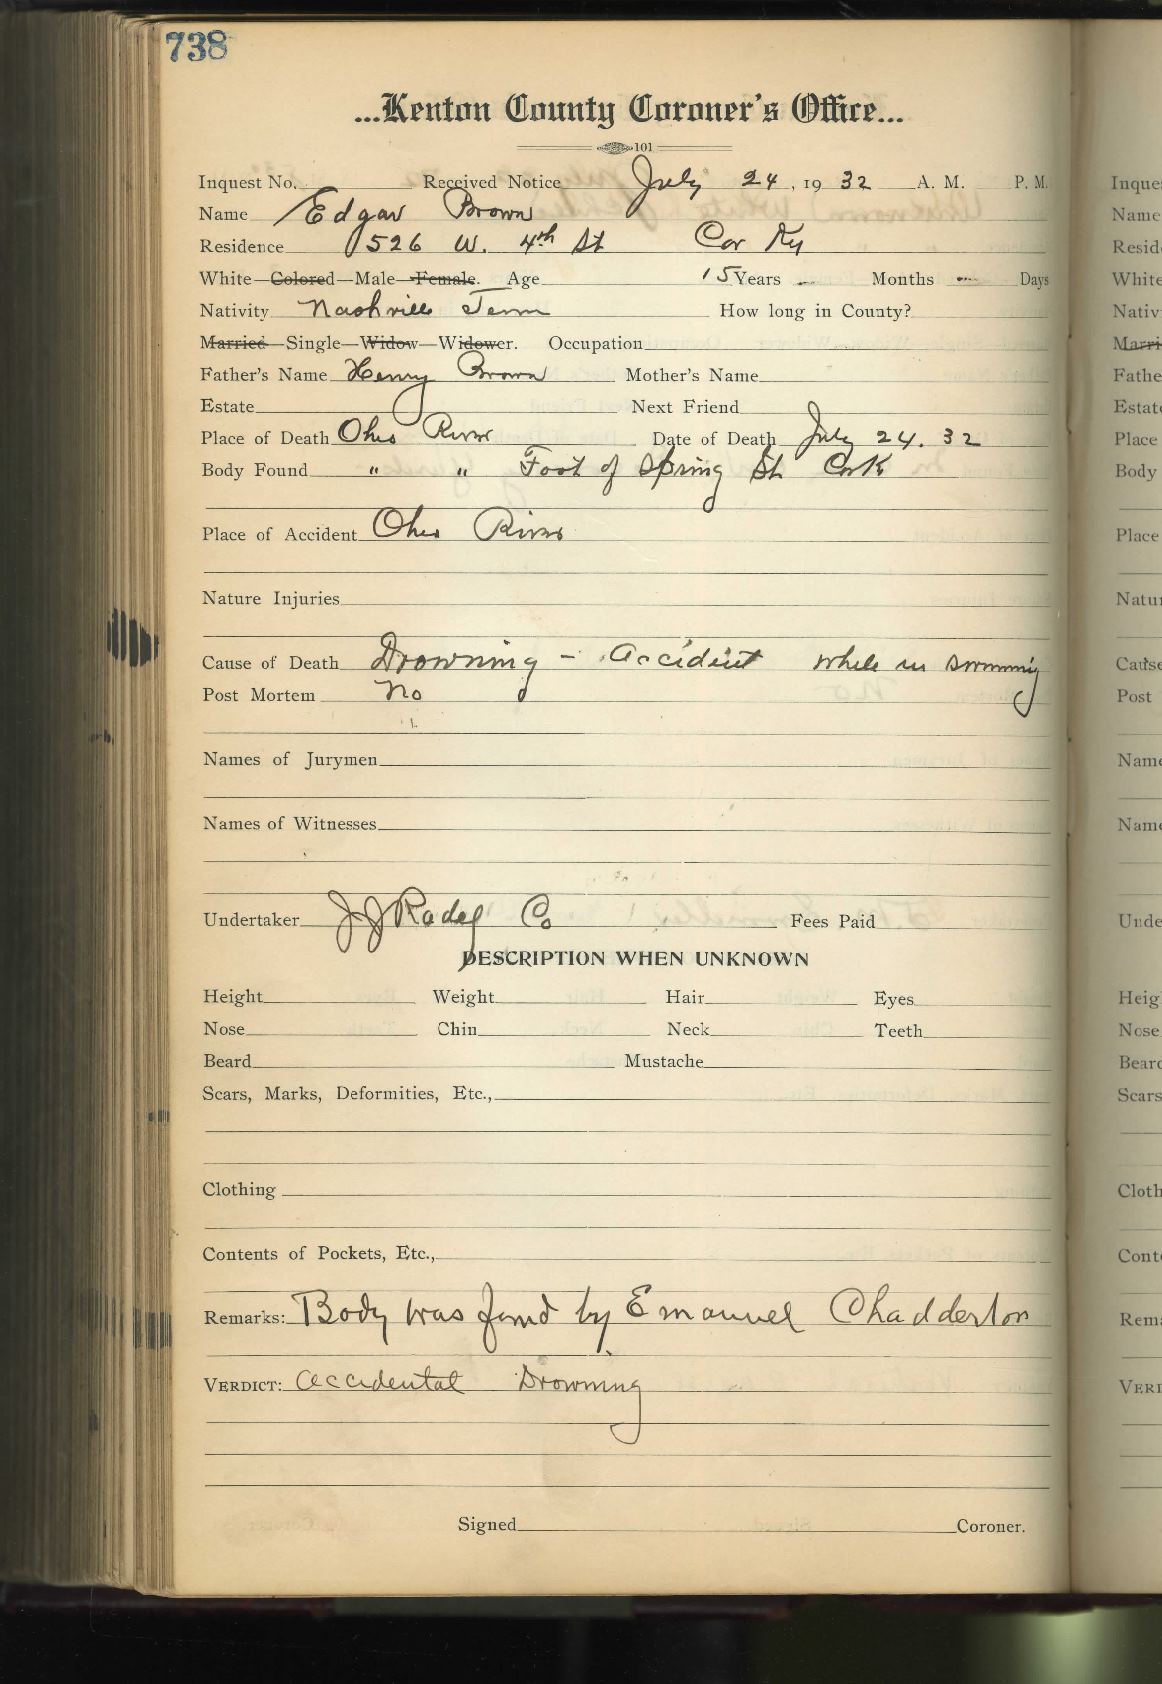 738
...Kenton County Coroner's Office...
101
Inquest No. Received Notice July 24, 1932 A. M. P. M.
Name Edgar Brown
Residence 526 W. 4th St Cov Ky
White—Colored—Male—Female. Age 15 Years — Months — Days
Nativity Nashville Tenn How long in County?
Married—Single—Widow—Widower. Occupation
Father's Name Henry Brown Mother's Name
Estate Next Friend
Place of Death Ohio River Date of Death July 24. 32
Body Found " " Foot of Spring St. Cov K
Place of Accident Ohio River
Nature Injuries
Cause of Death Drowning - Accident while in swimming
Post Mortem No
Names of Jurymen
Names of Witnesses
Undertaker J J Radel Co Fees Paid
DESCRIPTION WHEN UNKNOWN
Height Weight Hair Eyes
Nose Chin Neck Teeth
Beard Mustache
Scars, Marks, Deformities, Etc.,
Clothing
Contents of Pockets, Etc.,
Remarks: Body was found by Emanuel Chadderton
VERDICT: Accidental Drowning
Signed Coroner.
Name
Place
Body
Place
Post